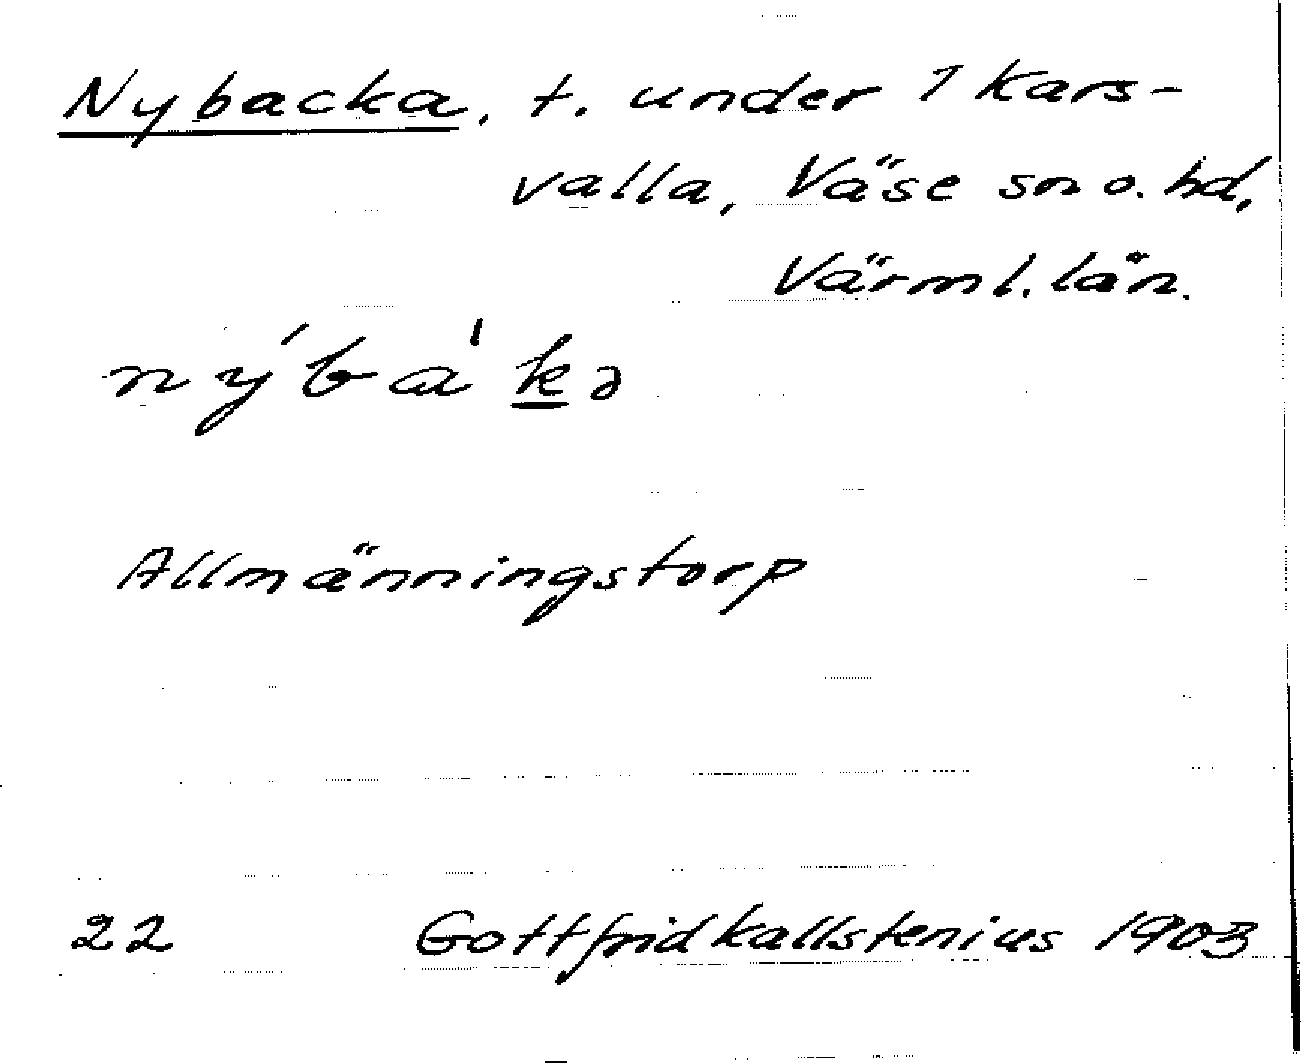 Nybacka, t. under 1 Kars-
valla, Väse sn o. hd,
Värml. län.
nýbákə
Allmänningstorp
22 Gottfrid Kallstenius 1903